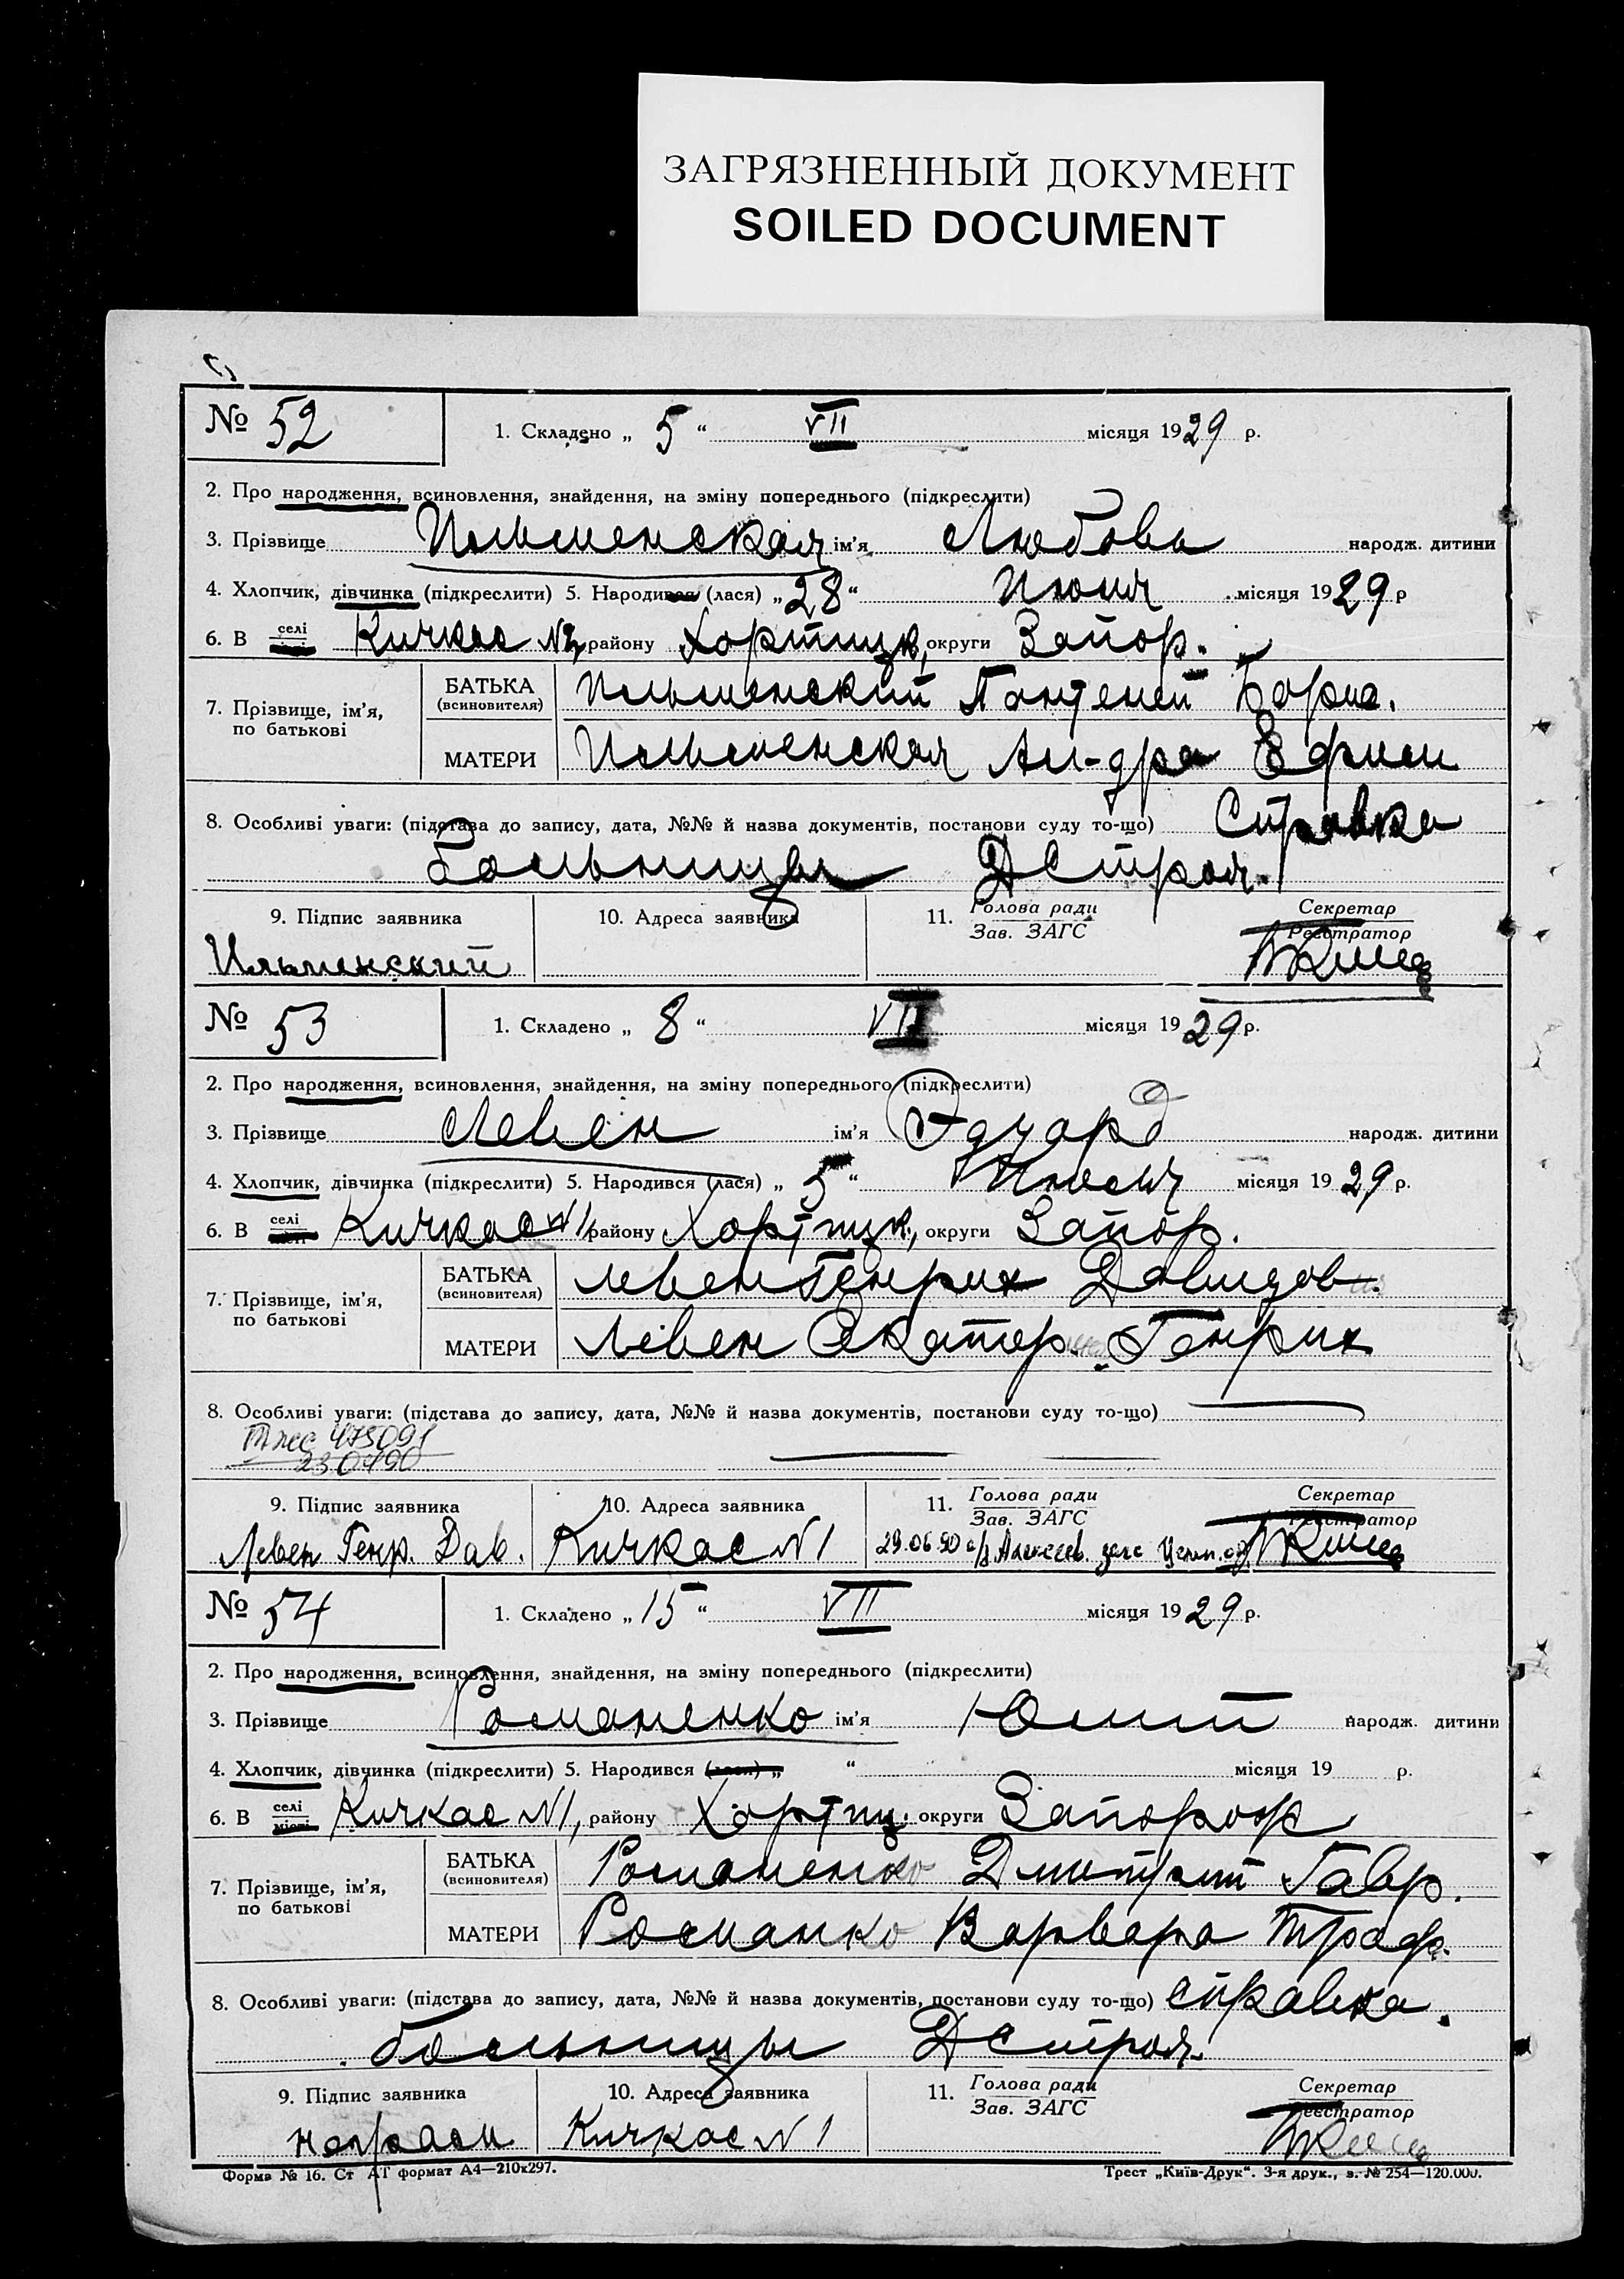 ЗАГРЯЗНЕННЫЙ ДОКУМЕНТ
SOILED DOCUMENT
№ 52
1. Складено „ 5 “ VII місяця 1929 р.
2. Про народження, всиновлення, знайдення, на зміну попереднього (підкреслити)
3. Прізвище Ильменская ім'я Любовь народж. дитини
4. Хлопчик, дівчинка (підкреслити) 5. Народився (лася) „ 28 “ Июня місяця 1929 р
6. В селі Кичкас району Хортицк, округи Запор.
7. Прізвище, ім'я, по батькові
БАТЬКА (всиновителя) Ильменский Пантелей Борис.
МАТЕРИ Ильменская Ал-дра Ефим
8. Особливі уваги: (підстава до запису, дата, №№ й назва документів, постанови суду то-що) Справка
больницы ДСтроя.
9. Підпис заявника
10. Адреса заявника
11. Голова ради
Зав. ЗАГС
Секретар
Реєстратор
Ильменский
№ 53
1. Складено „ 8 “ VII місяця 1929 р.
2. Про народження, всиновлення, знайдення, на зміну попереднього (підкреслити)
3. Прізвище Левен ім'я Эдуард народж. дитини
4. Хлопчик, дівчинка (підкреслити) 5. Народився (лася) „ 5 “ місяця 1929 р.
6. В селі Кичкас N1, району Хортицк, округи Запор.
7. Прізвище, ім'я, по батькові
БАТЬКА (всиновителя) Левен Генрих Давидов.
МАТЕРИ Левен Екатер. Генрих
8. Особливі уваги: (підстава до запису, дата, №№ й назва документів, постанови суду то-що)
473091
230490
9. Підпис заявника
10. Адреса заявника
11. Голова ради
Зав. ЗАГС
Секретар
Реєстратор
Левен Генр. Дав. Кичкас N1 29.06.90
№ 54
1. Складено „ 15 “ VII місяця 1929 р.
2. Про народження, всиновлення, знайдення, на зміну попереднього (підкреслити)
3. Прізвище Романенко ім'я Юлий народж. дитини
4. Хлопчик, дівчинка (підкреслити) 5. Народився (лася) „ “ місяця 19 р.
6. В селі місті Кичкас N1, району Хортиц. округи Запорож
7. Прізвище, ім'я, по батькові
БАТЬКА (всиновителя) Романенко Дмитрий Гавр.
МАТЕРИ Романко Варвара Троф.
8. Особливі уваги: (підстава до запису, дата, №№ й назва документів, постанови суду то-що) справка.
больницы ДСтроя.
9. Підпис заявника
10. Адреса заявника
11. Голова ради
Зав. ЗАГС
Секретар
Реєстратор
Кичкас N1
Форма № 16. Ст АТ формат А4—210х297.
Трест „Київ-Друк“. 3-я друк., з. № 254—120.000.